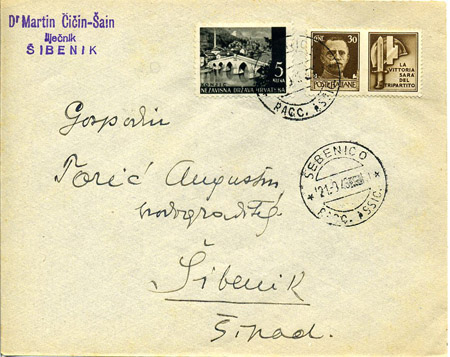 Dr Martin Čičin-Šain
liječnik
ŠIBENIK
5
KUNA
NEZAVISNA DRŽAVA HRVATSKA
30
POSTE ITALIANE
LA
VITTORIA
SARÀ
DEL
TRIPARTITO
RACC. ASSIC.
Gospodin
Torić Augustin
brodograditelj
Šibenik
SEBENICO
RACC. ASSIC.